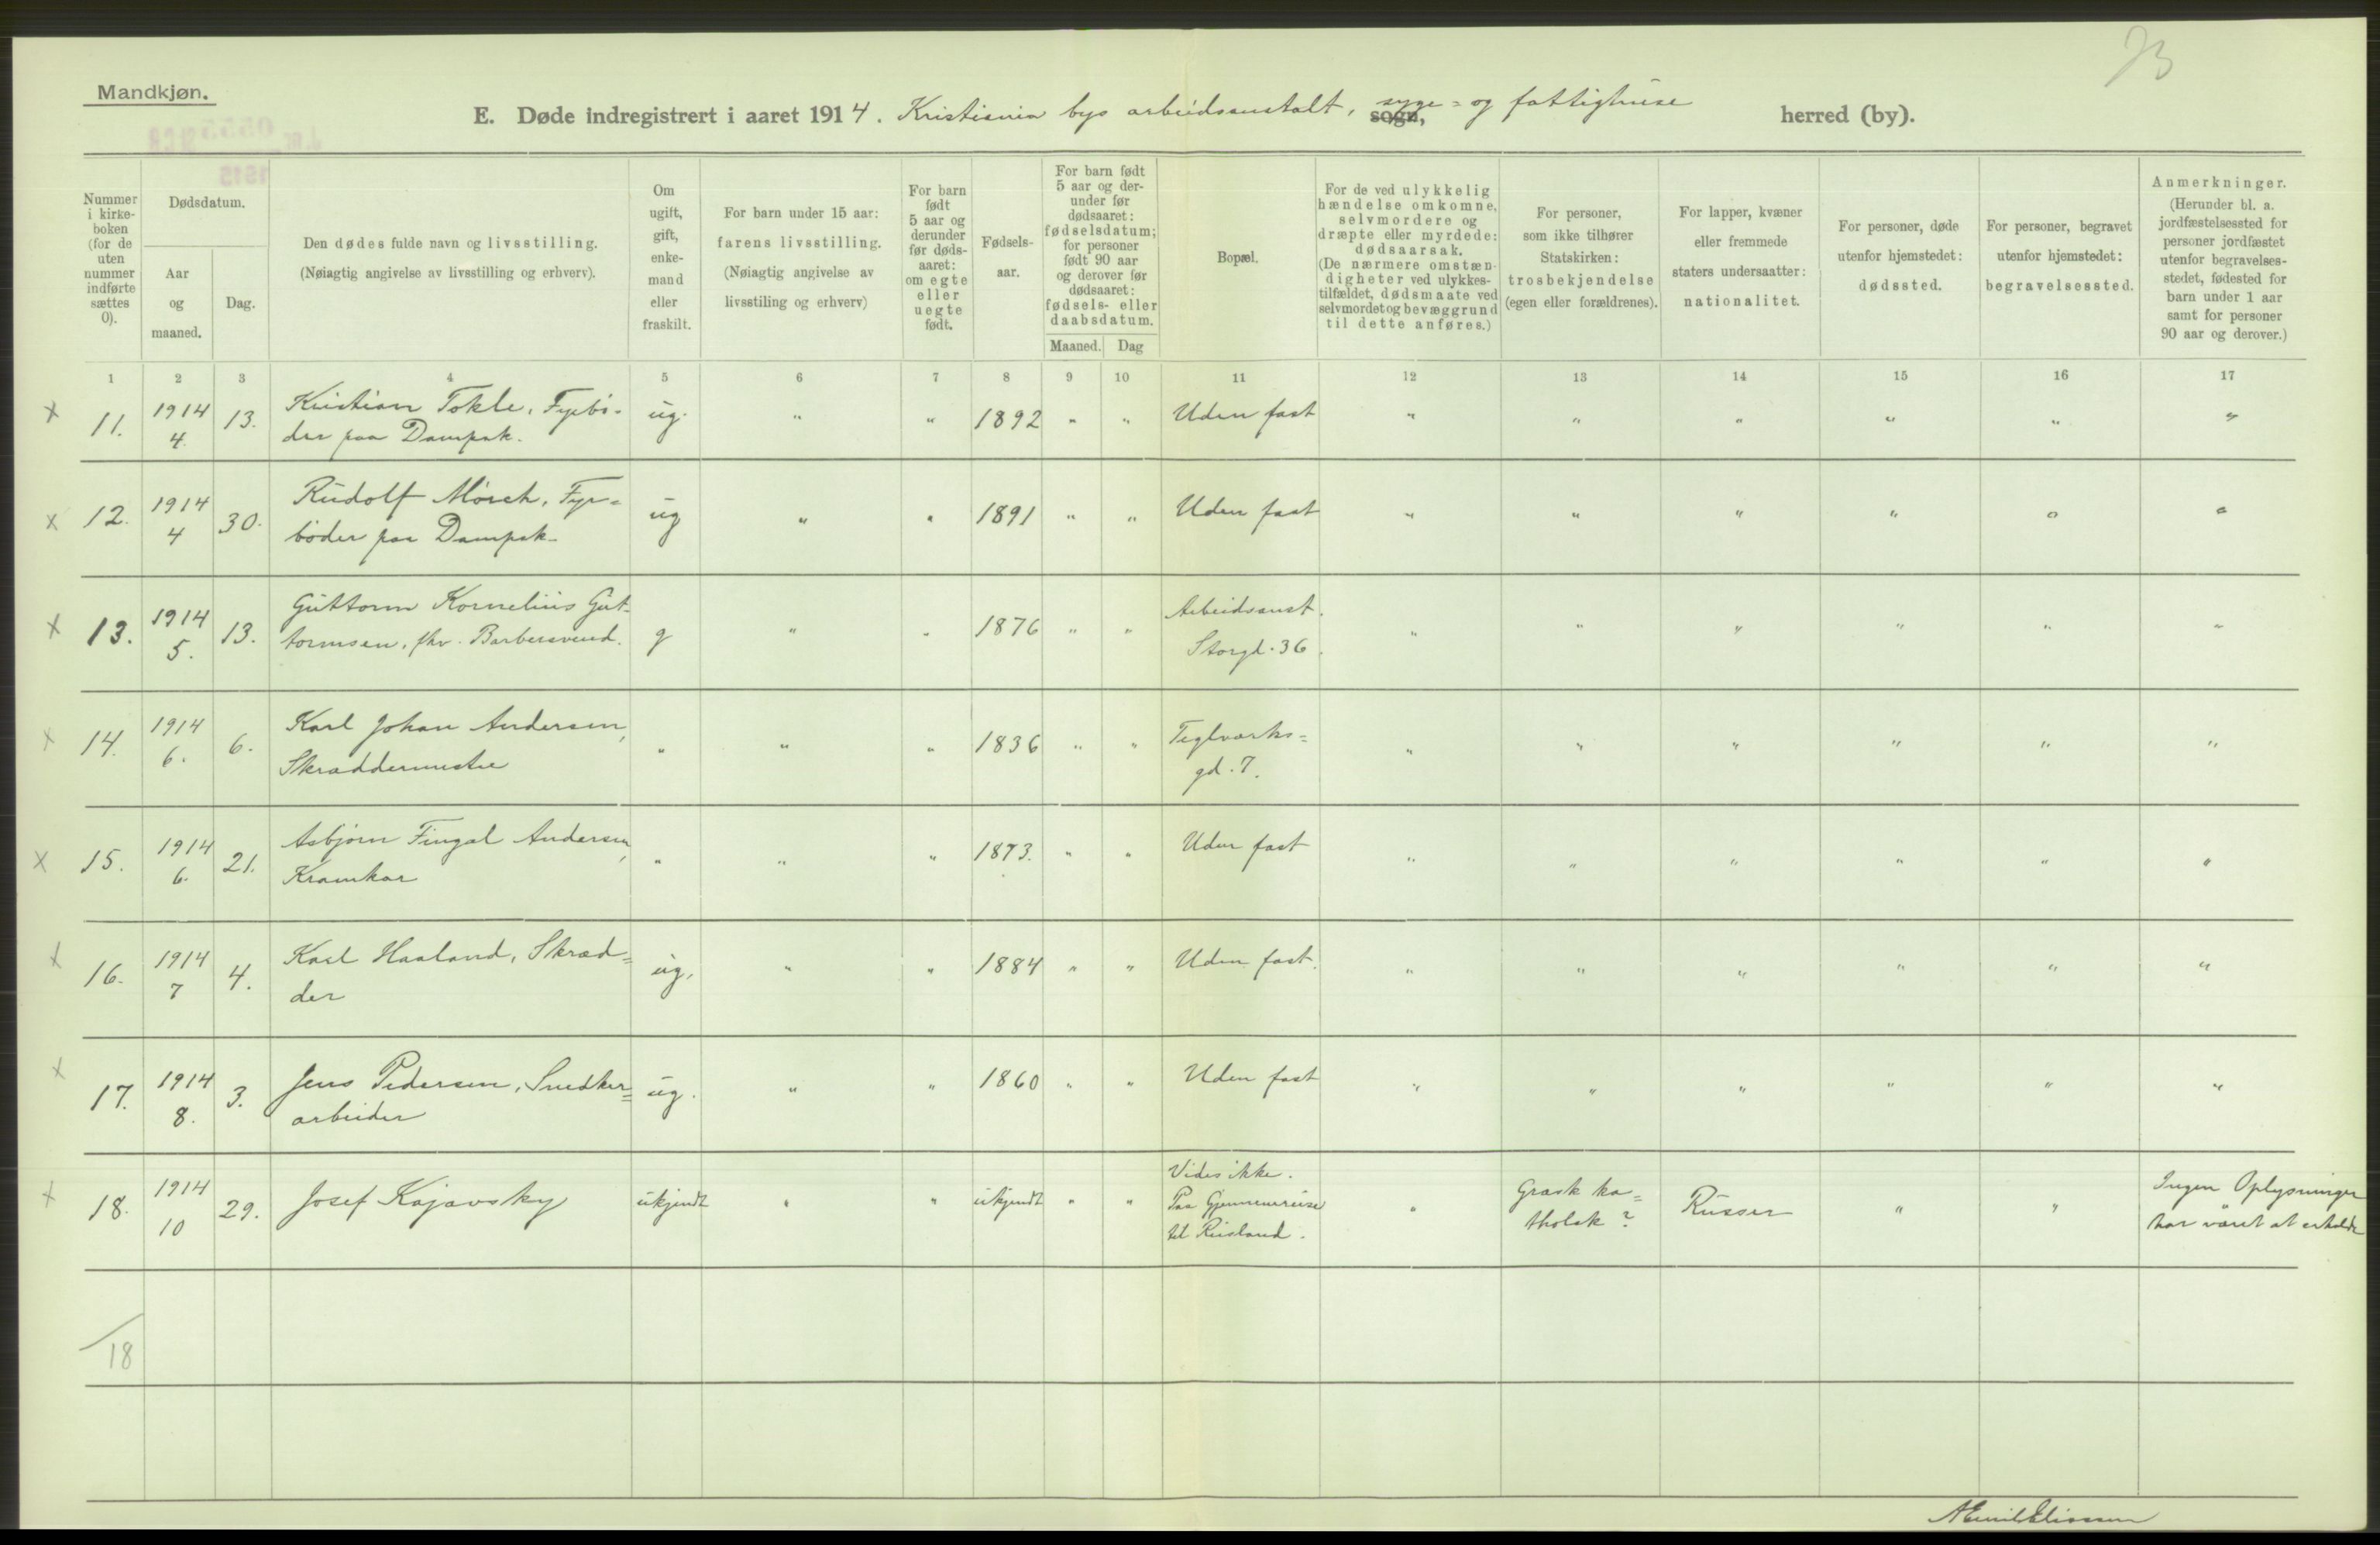 Mandkjøn.
73
E. Døde indregistrert i aaret 1914. Kristiania bys arbeidsanstalt, syge- og fattighuse sogn, herred (by).
Nummer i kirkeboken (for de uten nummer indførte sættes 0).
Dødsdatum.
Aar og maaned.
Dag.
Den dødes fulde navn og livsstilling.
(Nøiagtig angivelse av livsstilling og erhverv).
Om ugift, gift, enkemand eller fraskilt.
For barn under 15 aar: farens livsstilling.
(Nøiagtig angivelse av livsstiling og erhverv)
For barn født 5 aar og derunder før dødsaaret: om egte eller uegte født.
Fødselsaar.
For barn født 5 aar og derunder før dødsaaret: fødselsdatum; for personer født 90 aar og derover før dødsaaret: fødsels- eller daabsdatum.
Maaned. Dag
Bopæl.
For de ved ulykkelig hændelse omkomne, selvmordere og dræpte eller myrdede: dødsaarsak.
(De nærmere omstændigheter ved ulykkestilfældet, dødsmaate ved selvmordet og bevæggrund til dette anføres.)
For personer, som ikke tilhører Statskirken: trosbekjendelse (egen eller forældrenes).
For lapper, kvæner eller fremmede staters undersaatter: nationalitet.
For personer, døde utenfor hjemstedet: dødssted.
For personer, begravet utenfor hjemstedet: begravelsessted.
Anmerkninger.
(Herunder bl. a. jordfæstelsessted for personer jordfæstet utenfor begravelsesstedet, fødested for barn under 1 aar samt for personer 90 aar og derover.)
1 2 3 4 5 6 7 8 9 10 11 12 13 14 15 16 17
x 11. 1914 4. 13. Kristian Tokle, Fyrbø-
der paa Dampsk. ug. " " 1892 " " Uden fast " " " " " "
x 12. 1914 4 30. Rudolf Mørch, Fyr=
bøder paa Dampsk. ug " " 1891 " " Uden fast " " " " " "
x 13. 1914 5. 13. Guttorm Kornelius Gut-
tormsen, fhv. Barbersvend. g " " 1876 " " Arbeidsanst.
Storgd. 36. " " " " " "
x 14. 1914 6. 6. Karl Johan Andersen,
Skræddermester " " " 1836 " " Teglværks=
gd. 7. " " " " " "
x 15. 1914 6. 21. Asbjørn Fingal Andersen,
Kramkar " " " 1873. " " Uden fast " " " " " "
x 16. 1914 7 4. Karl Haaland, Skræd=
der ug. " " 1884 " " Uden fast. " " " " " "
x 17. 1914 8. 3. Jens Pedersen, Snedker=
arbeider ug. " " 1860 " " Uden fast " " " " " "
x 18. 1914 10 29. Josef Kajavsky ukjendt " " ukjendt " " Vides ikke.
Paa Gjennemreise
til Rusland. " Græsk ka=
tholsk? Russer " " Ingen Oplysninger
har været at erholde
18